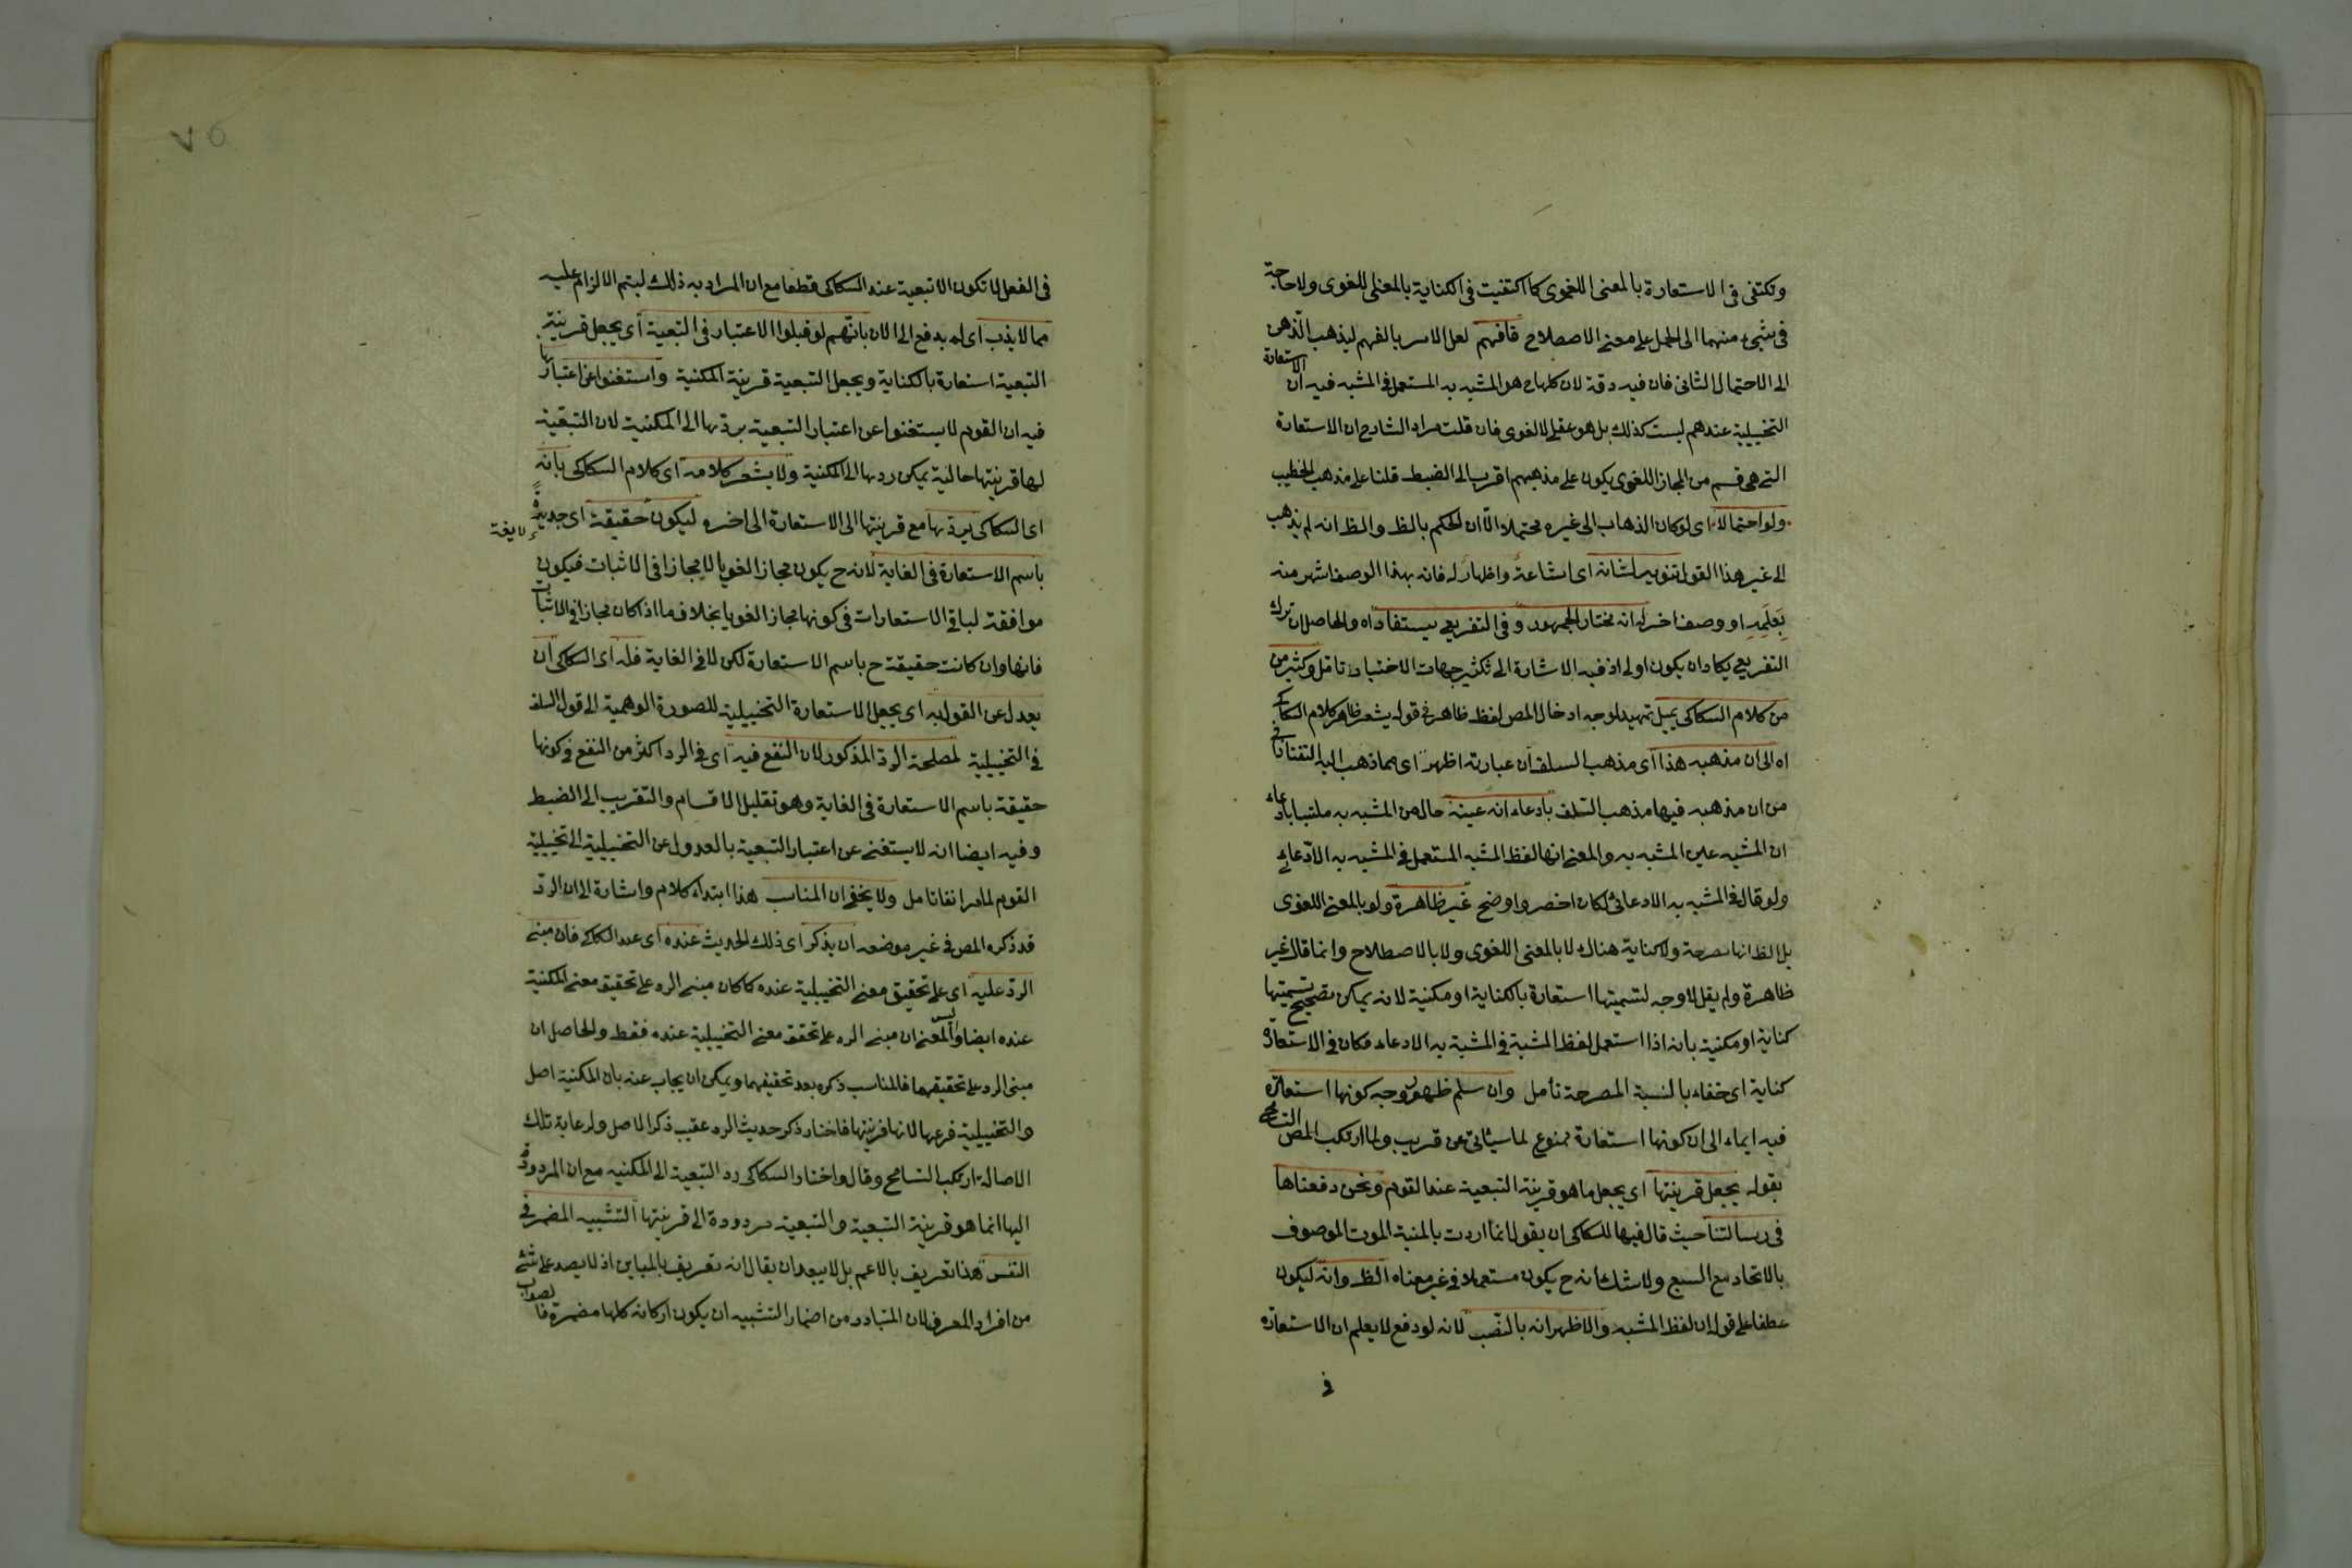 وتكتفى فى الاستعارة بالمعنى اللغوى كما اكتفيت فى الكناية بالمعنى اللغوى ولا حاجة
فى شىء منهما الى الحمل على معنى الاصطلاح فافهم لعل الامر بالفهم ليذهب الذهن
الى الاحتمال الثانى فان فيه دقة لان كلها ح هو المشبه به المستعمل فى المشبه فيه ان الاستعارة
التخييلية عندهم ليست كذلك بل هو عقلى لا لغوى فان قلت مراد الشارح ان الاستعارة
التى هى قسم من المجاز اللغوى يكون على مذهبهم اقرب الى الضبط قلنا على مذهب الخطيب
ولو احتمالا اى لو كان الذهاب الى غيره محتملا الا ان الحكم بالظ والظ انه لم يذهب
الى غير هذا القول تنويه لشانه اى اشاعة واظهار له فانه بهذا الوصف اشهر منه
بعلمه او وصف اخر له انه مختار الجمهور وفى التفريعى يستفاد اه والحاصل ان ترك
التفريعى يكاد ان يكون اولى اذ فيه الاشارة الى تكثير جهات الاختيار تامل وكثير من
من كلام السكاكى يميل تمهيد لوجه ادخال المص لفظ ظاهر فى قوله يشعر ظاهر كلام السكاكى
اه الى ان مذهبه هذا اى مذهب السلف ان عبارته اظهر اى مما ذهب اليه التفتازانى
من ان مذهبه فيها مذهب السلف بادعاء انه عينه حال من المشبه به ملتبسا بادعاء
ان المشبه عين المشبه به والمعنى انها لفظ المشبه المستعمل فى المشبه به الادعائى
ولو قال فى المشبه به الادعائى لكان اخصر واوضح غير ظاهرة ولو بالمعنى اللغوى
بل الظ انها مصرحة ولا كناية هناك لا بالمعنى اللغوى ولا بالاصطلاح وانما قال غير
ظاهرة ولم يقل لا وجه لتسميتها استعارة بالكناية او مكنية لانه يمكن تصحيح تسميتها
كناية او مكنية بانه اذا استعمل لفظ المشبه فى المشبه به الادعاء فكان فى الاستعارة
كناية اى خفاء بالنسبة المصرحة تأمل وان سلم ظهور وجه كونها استعارة
فيه ايماء الى ان كونها استعارة ممنوع لما سيأتى عن قريب ولما ارتكب المص التسامح
بقوله يجعل قرينتها اى يجعل ما هو قرينة التبعية عند القوم ونحن دفعناها
فى رسالتنا حيث قال فيها للسكاكى ان يقول انما اردت بالمنية الموت الموصوف
بالاتحاد مع السبع ولا شك انه ح يكون مستعملا فى غير معناه الظ وانه ليكون
عطفا على قوله ان لفظ المشبه والاظهر انه بالنصب لانه لو دفع لا يعلم ان الاستعارة
فى
٧٥
فى الفعل لا تكون الا تبعية عند السكاكى قطعا مع ان المراد به ذلك ليتم الالزام عليه
مما لا يذب اى لم يدفع الى الان بانهم لو قبلوا الاعتبار فى التبعية اى يجعل قرينة
التبعية استعارة بالكناية ويجعل التبعية قرينة المكنية واستغنوا عن اعتبارها
فيه ان القوم لا يستغنوا عن اعتبار التبعية بردّها الى المكنية لان التبعية
لها قرينتها حالية يمكن ردها الى المكنية ولا يشعر كلامه اى كلام السكاكى بانه
اى السكاكى يردّ بها مع قرينتها الى الاستعارة الى اخره ليكون حقيقة اى جديرة
لايقة
باسم الاستعارة فى الغاية لانه ح يكون مجازا لغويا لا مجازا فى الاثبات فيكون
موافقة لباقى الاستعارات فى كونها مجازا لغويا بخلاف ما اذا كان مجازا فى الاثبات
فانها وان كانت حقيقة ح باسم الاستعارة لكن لا فى الغاية فله اى السكاكى ان
يعدل عن القول به اى يجعل الاستعارة التخييلية للصورة الوهمية الى قول السلف
فى التخييلية لمصلحة الرد المذكور لان النفع فيه اى فى الرد اكثر من النفع فى كونها
حقيقة باسم الاستعارة فى الغاية وهو تقليل الاقسام والتقريب الى الضبط
وفيه ايضا انه لا يستغنى عن اعتبار التبعية بالعدول عن التخييلية الى تخييلية
القوم لما مر انفا تامل ولا يخفى ان المناسب هذا ابتداء كلام واشارة الى ان الرد
قد ذكره المص فى غير موضعه ان يذكر اى ذلك الحديث عنده اى عند السكاكى فان مبنى
الرد عليه اى على تحقيق معنى التخييلية عنده كما كان مبنى الرد على تحقيق معنى المكنية
عنده ايضا وليس المعنى ان مبنى الرد على تحقق معنى التخييلية عنده فقط والحاصل ان
مبنى الرد على تحقيقهما فالمناسب ذكره بعد تحقيقهما ويمكن ان يجاب عنه بان المكنية اصل
والتخييلية فرعها لانها قرينتها فاختار ذكر حديث الرد عقيب ذكر الاصل ولرعاية تلك
الاصالة ارتكب التسامح وقال واختار السكاكى رد التبعية الى المكنية مع ان المردود
اليها انما هو قرينة التبعية والتبعية مردودة الى قرينتها التشبيه المضمر فى
النفس هذا تعريف بالاعم بل لا يبعد ان يقال انه تعريف بالمباين اذ لا يصدق على شئ
من افراد المعرف لان المتبادر من اضمار التشبيه ان يكون اركانه كلها مضمرة فالصواب